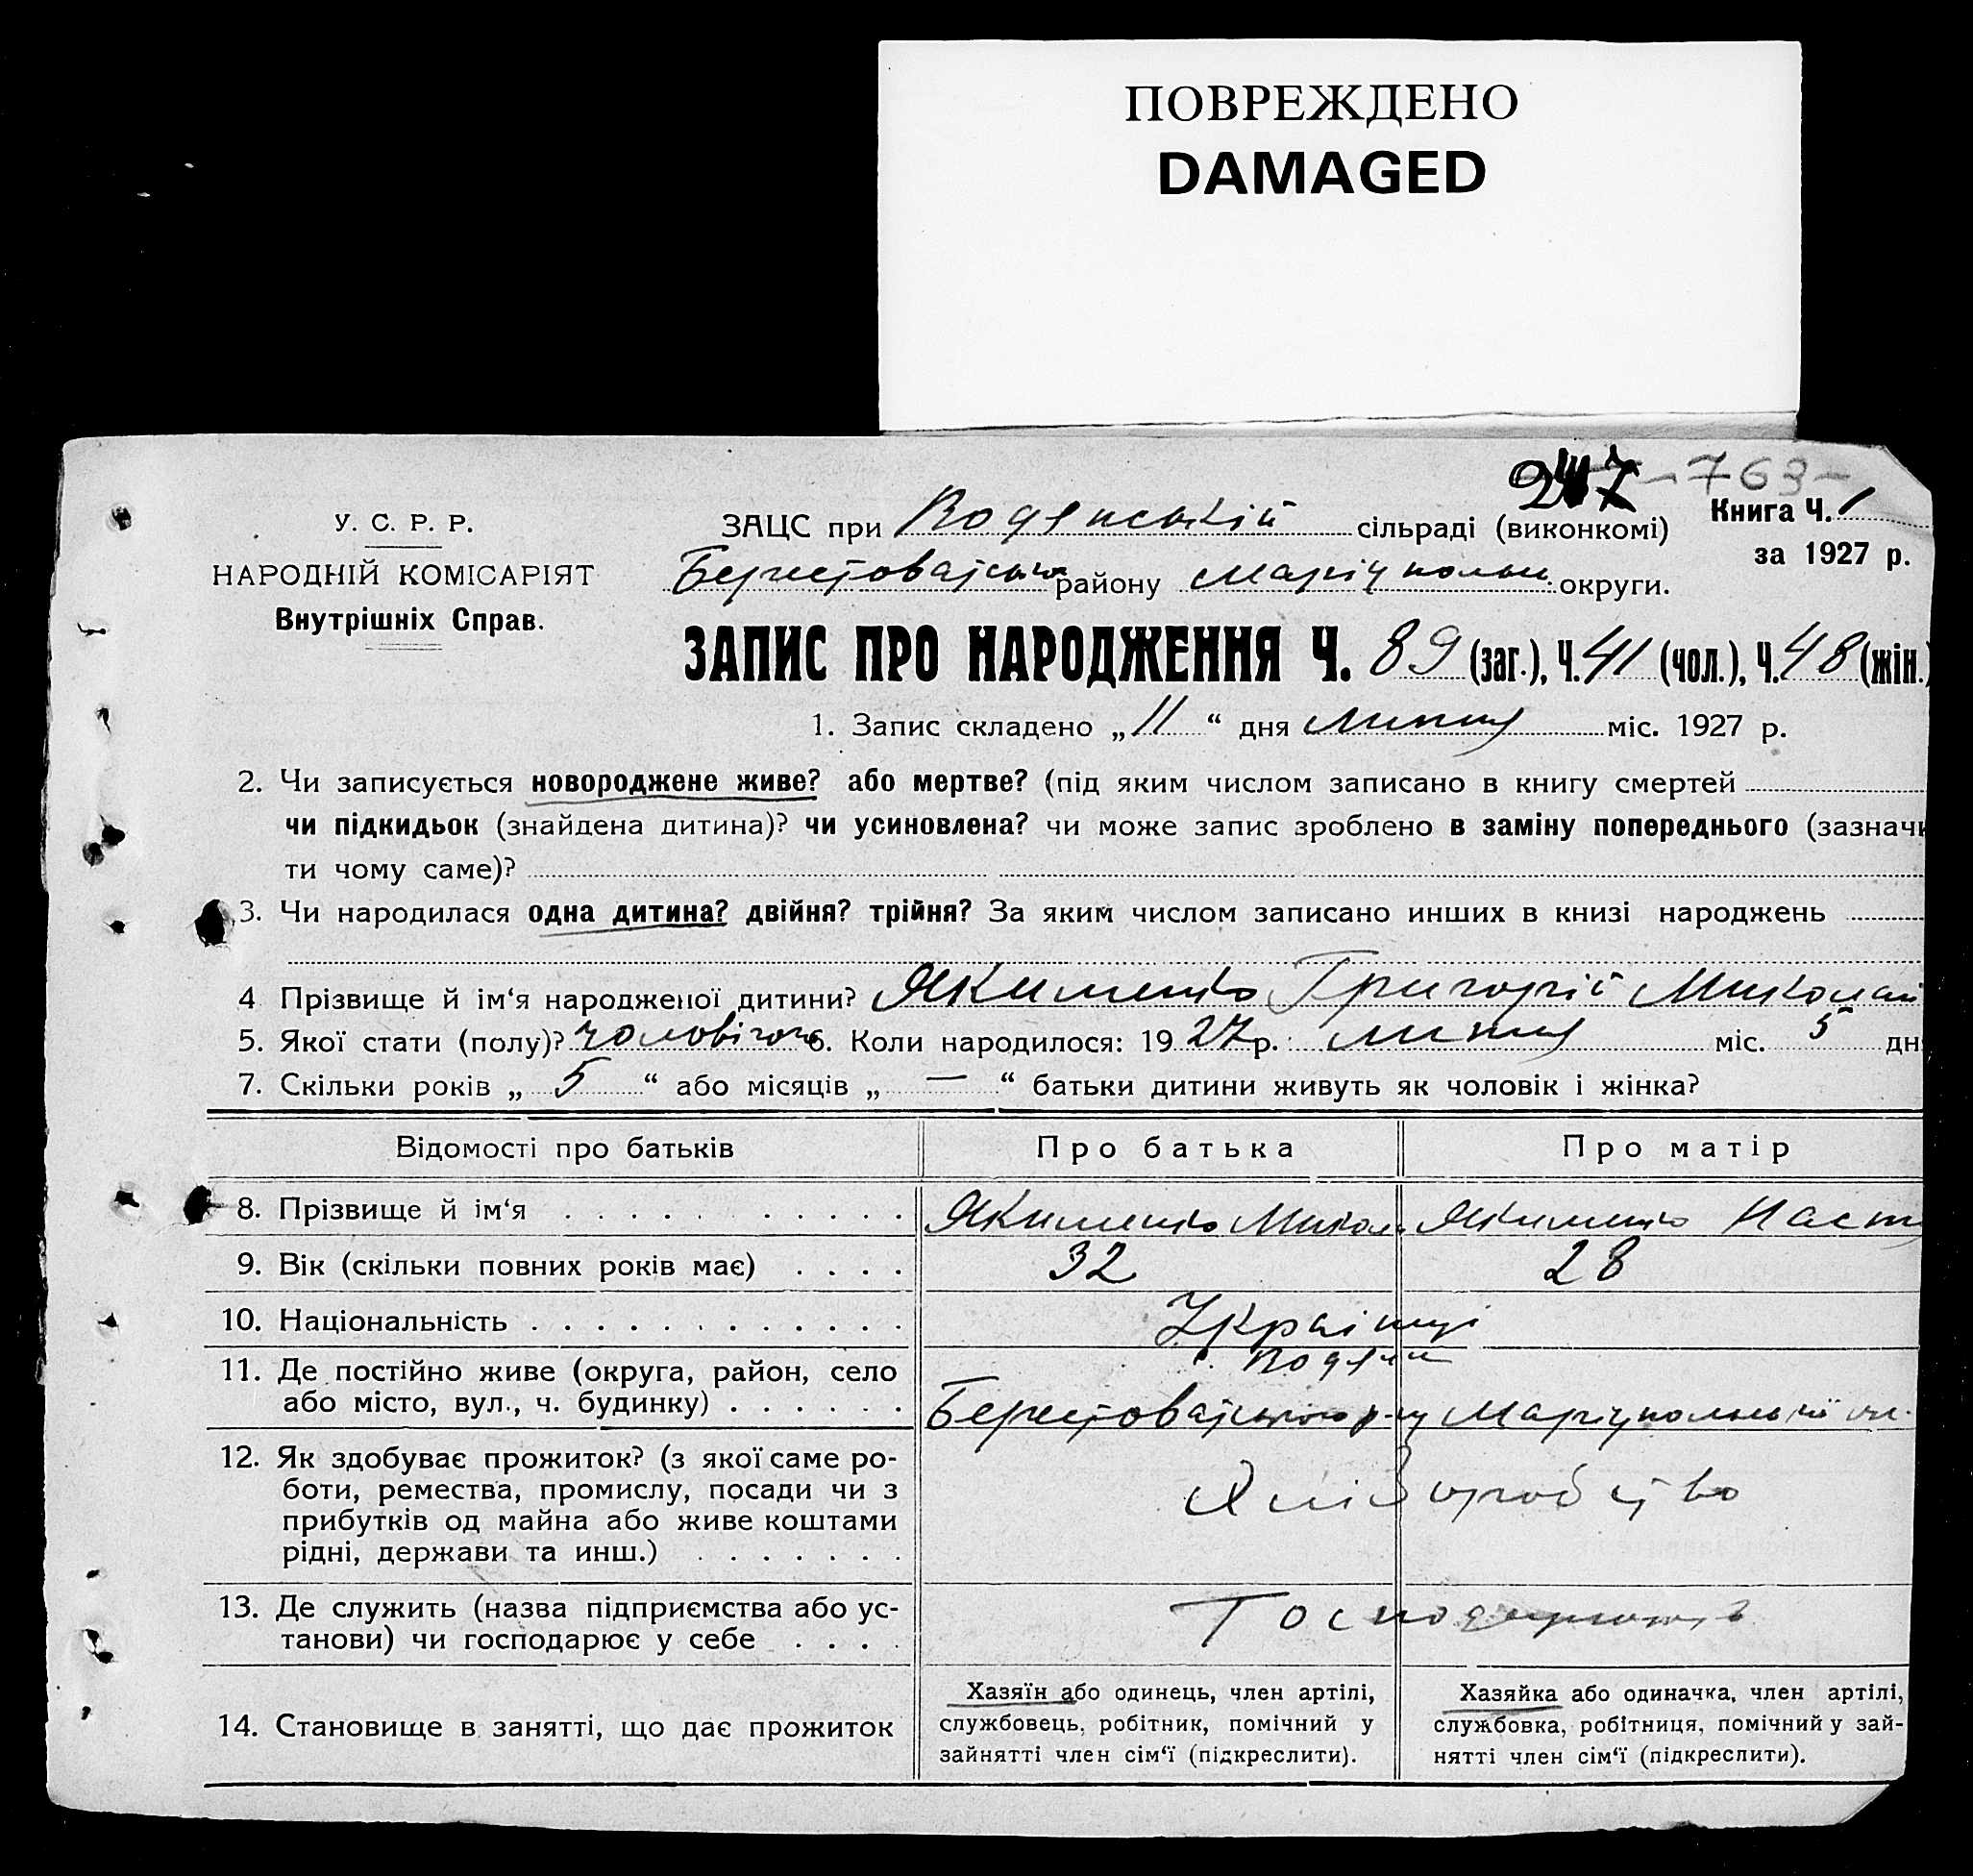 ПОВРЕЖДЕНО
DAMAGED
247 -763-
У. С. Р. Р.
НАРОДНІЙ КОМІСАРІЯТ
Внутрішніх Справ.
Книга Ч. 1
за 1927 р.
ЗАЦС при Водянській сільраді (виконкомі)
району округи.
ЗАПИС ПРО НАРОДЖЕННЯ Ч. 89 (заг.), Ч. 41 (чол.), Ч. 48 (жін.)
1. Запис складено „ 11 “ дня липня міс. 1927 р.
2. Чи записується новороджене живе? або мертве? (під яким числом записано в книгу смертей
чи підкидьок (знайдена дитина)? чи усиновлена? чи може запис зроблено в заміну попереднього (зазначи
ти чому саме)?
3. Чи народилася одна дитина? двійня? трійня? За яким числом записано инших в книзі народжень
4 Прізвище й ім‘я народженої дитини? Якименко Григорій Миколай
5. Якої стати (полу)? чоловічого 6. Коли народилося: 1927 р. липня міс. 5 дн
7. Скільки років „ 5 “ або місяців „ — “ батьки дитини живуть як чоловік і жінка?
Відомості про батьків Про батька Про матір
8. Прізвище й ім‘я . . . . . . . . . . . Якименко Микол. Якименко Наст
9. Вік (скільки повних років має) . . . . 32 28
10. Національність . . . . . . . . . . . . . Українці
11. Де постійно живе (округа, район, село
або місто, вул., ч. будинку) . . . . . .
12. Як здобуває прожиток? (з якої саме ро-
боти, ремества, промислу, посади чи з
прибутків од майна або живе коштами
рідні, держави та инш.) . . . . . . .
Хліборобство
13. Де служить (назва підприємства або ус-
танови) чи господарює у себе . . . .
14. Становище в занятті, що дає прожиток
Хазяїн або одинець, член артілі,
службовець, робітник, помічний у
зайнятті член сім‘ї (підкреслити).
Хазяйка або одиначка, член артілі,
службовка, робітниця, помічний у зай-
нятті член сім‘ї (підкреслити).